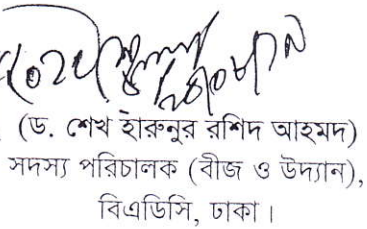 (ড. শেখ হারুনুর রশিদ আহমদ)
সদস্য পরিচালক (বীজ ও উদ্যান),
বিএডিসি, ঢাকা।